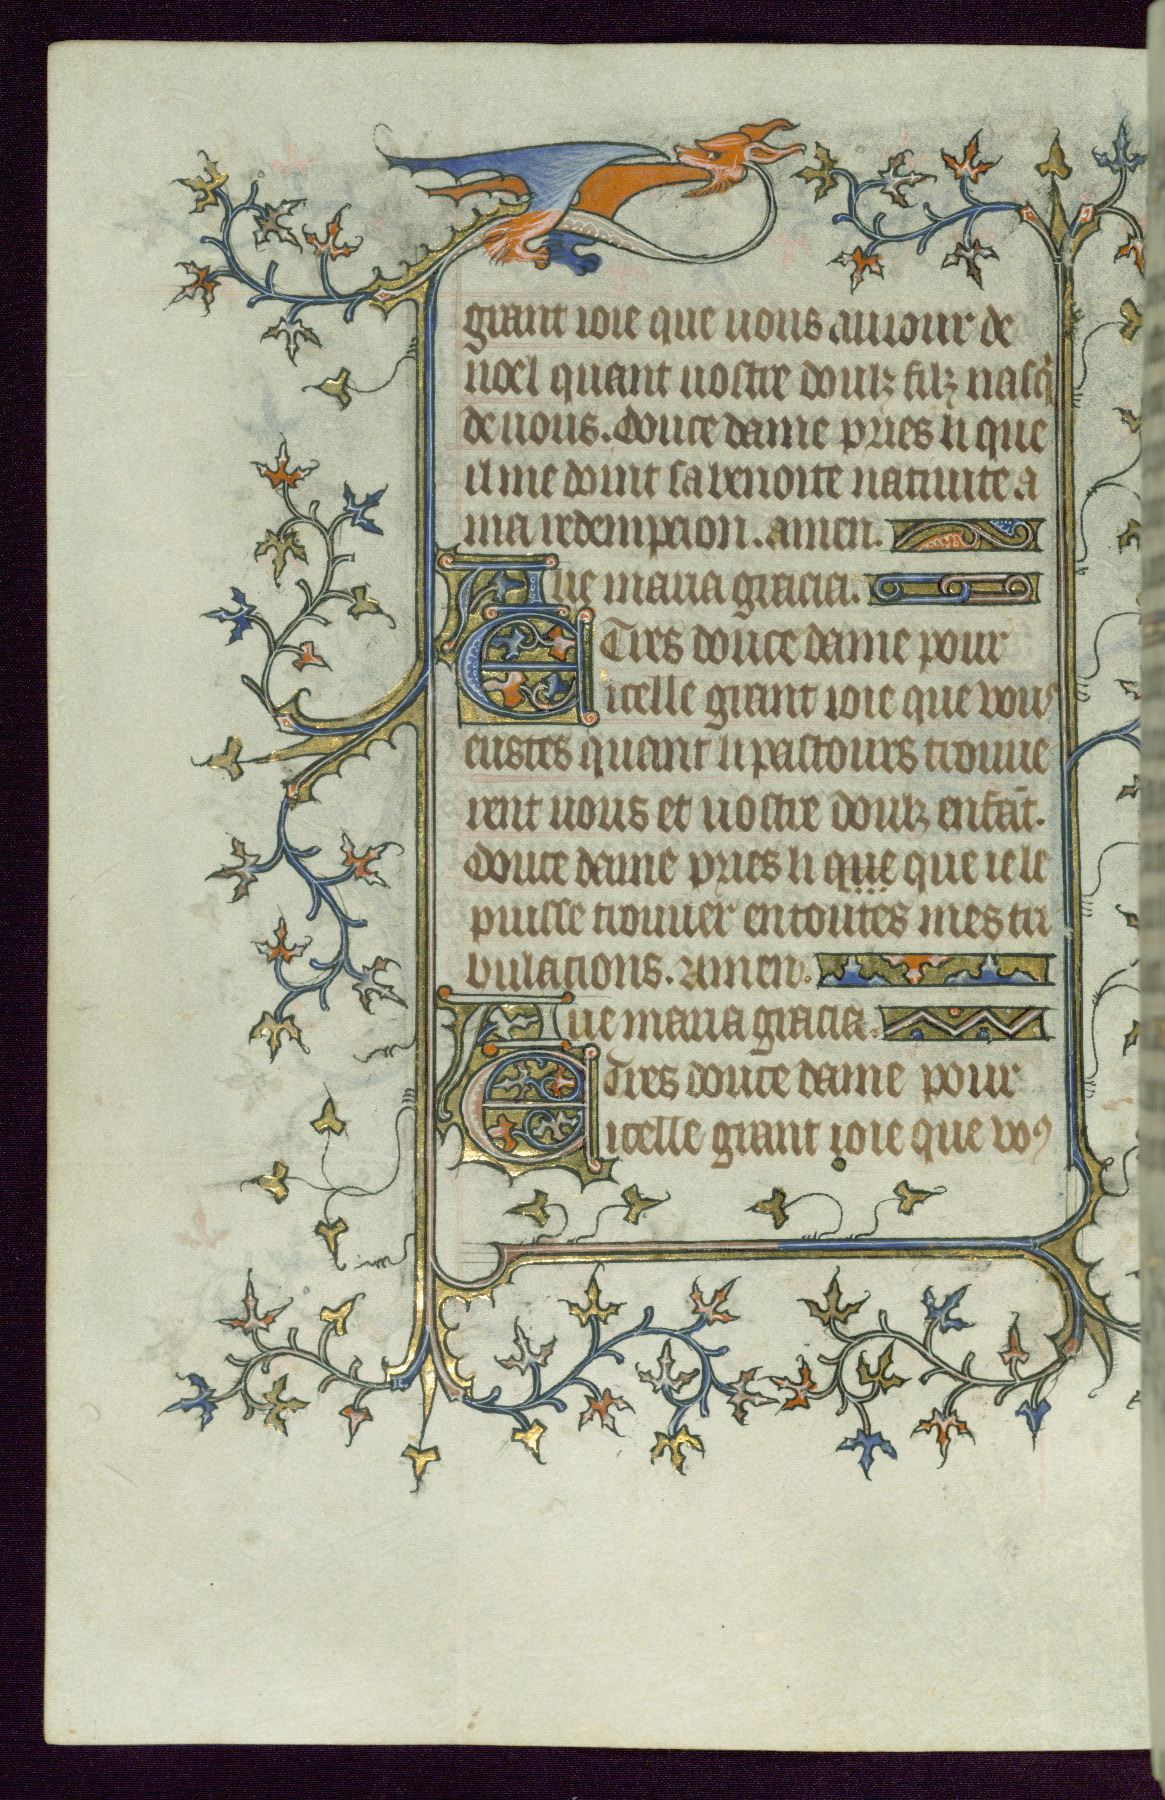 grant ioie que uous auiour de
noel quant uostre doulz filz nasq̃
de uous. Douce dame pries li que
il me doint sa benoite natiuite a
ma redempcion. amen.
Aue maria gracia.
E Tres douce dame pour
icelle grant ioie que vous
eustes quant li pastours trouue
rent uous et uostre doulz enfāt.
Douce dame pries li que que ie le
puisse trouuer en toutes mes tri
bulations. Amen.
Aue maria gracia.
E Tres douce dame pour
icelle grant ioie que voꝰ